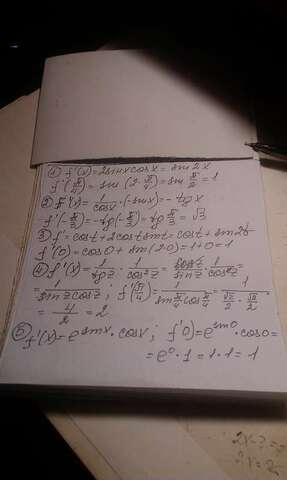 ① f'(x)=2sinxcosx=sin2x
f'(π/4)=sin(2·π/4)=sin π/2=1
② f'(x)=1/cosx·(-sinx)=-tgx
f'(-π/3)=-tg(-π/3)=tg π/3=√3
③ f'=cost+2costsint=cost+sin2t
f'(0)=cos0+sin(2·0)=1+0=1
④ f'(x)=1/tgz·1/cos²z=cosz/sinz·1/cos²z=
=1/sinzcosz; f'(π/4)=1/(sin π/4 cos π/4)=1/(√2/2·√2/2)=
=4/2=2
⑤ f'(x)=e^sinx·cosx; f'(0)=e^sin0·cos0=
=e^0·1=1·1=1
2x-?=
2x=